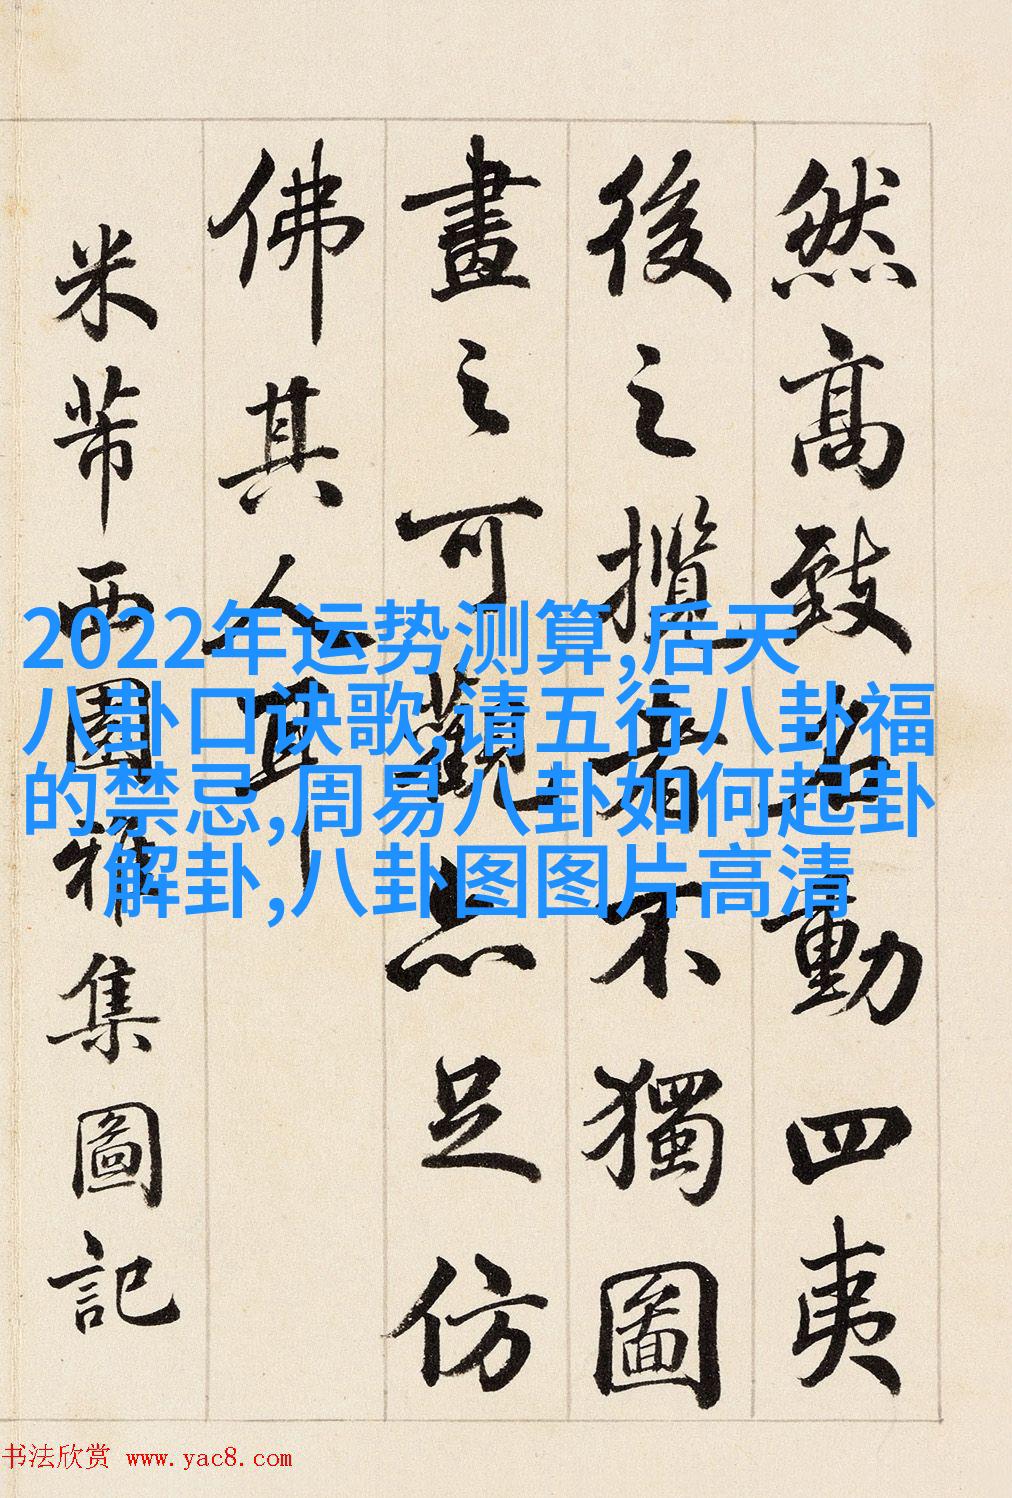 然高致名動四夷
後之攬者不獨圖
畫之可觀亦足仿
佛其人耳
米芾西園雅集圖記
2022年运势测算,后天
八卦口诀歌,请五行八卦福
的禁忌,周易八卦如何起卦
解卦,八卦图图片高清
书法欣赏 www.yac8.com